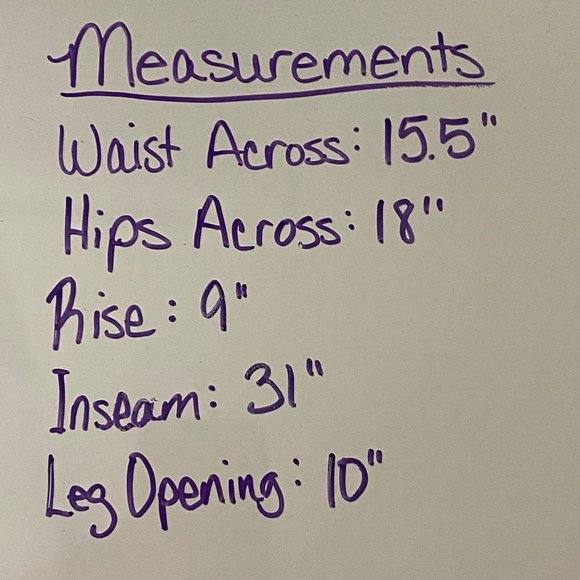 Measurements
Waist Across: 15.5"
Hips Across: 18"
Rise: 9"
Inseam: 31"
Leg Opening: 10"